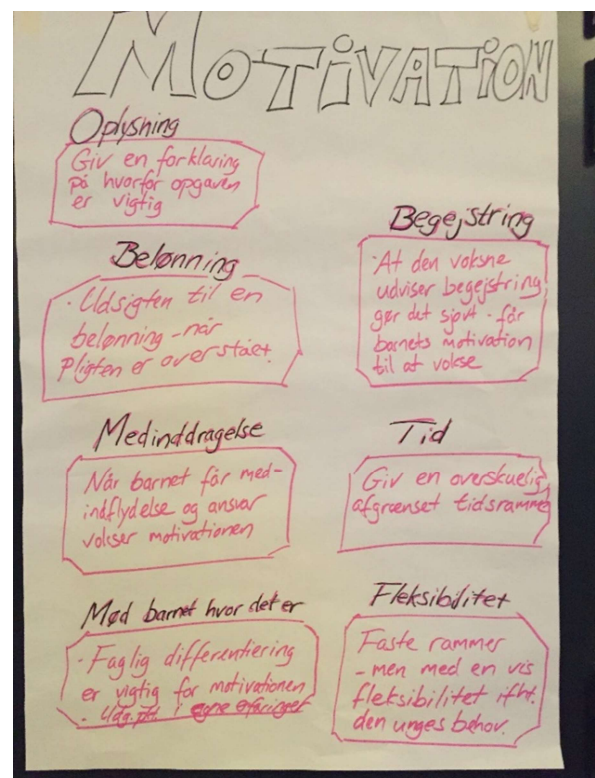 MOTIVATION
Oplysning
Giv en forklaring
på hvorfor opgaven
er vigtig
Belønning
· Udsigten til en
belønning - når
pligten er overstået.
Medinddragelse
Når barnet får med-
indflydelse og ansvar
vokser motivationen
Mød barnet hvor det er
- Faglig differentiering
er vigtig for motivationen
- Udg.pkt. i egne erfaringer
Begejstring
· At den voksne
udviser begejstring,
gør det sjovt - får
barnets motivation
til at vokse
Tid
Giv en overskuelig,
afgrænset tidsramme
Fleksibilitet
Faste rammer
- men med en vis
fleksibilitet ifht.
den unges behov.